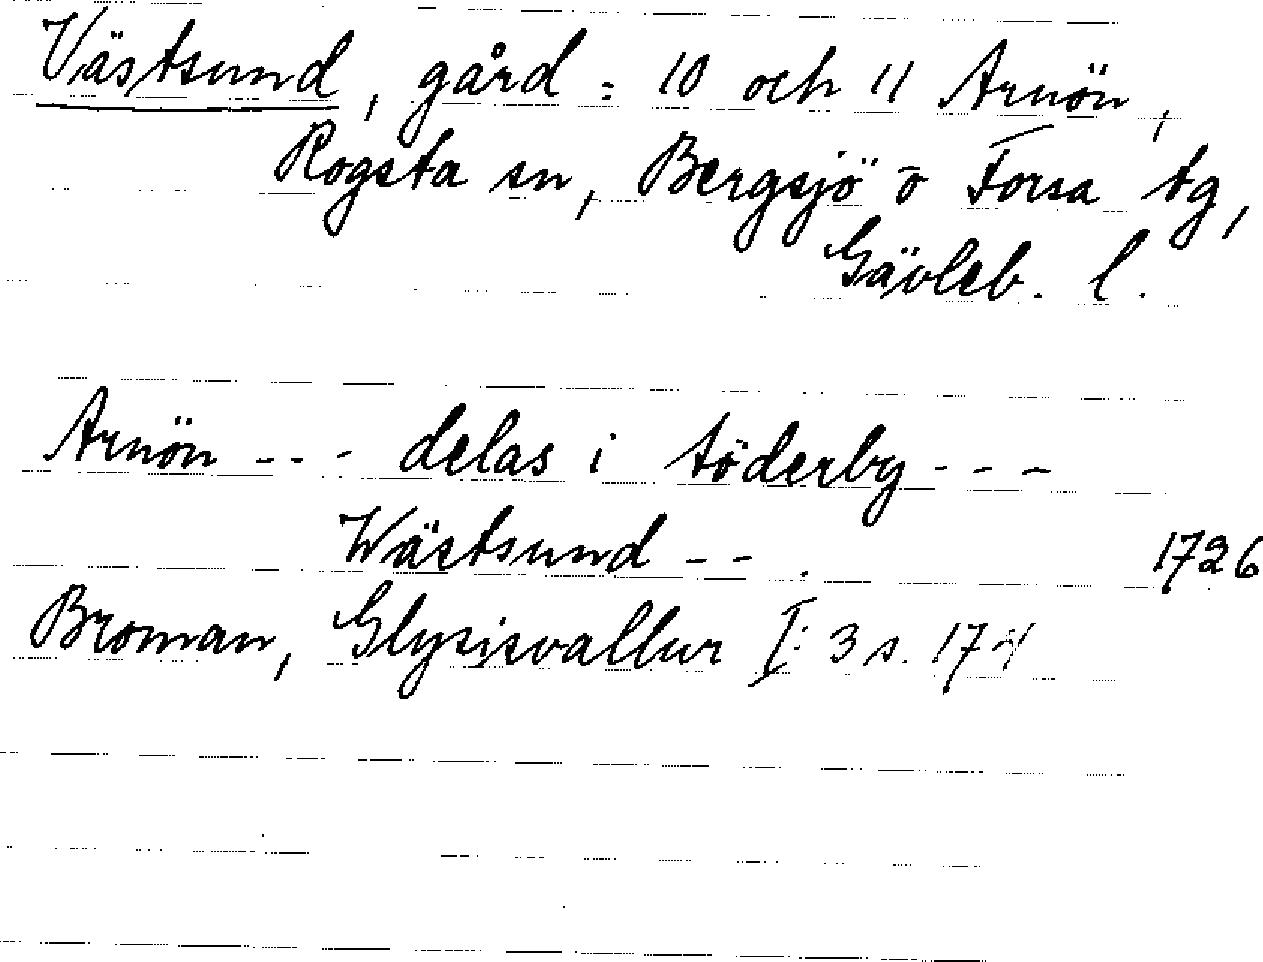 Västsund, gård = 10 och 11 Arnön,
Rogsta sn, Bergsjö o Forsa tg,
Gävleb. l.
Arnön - - - delas i töderby - - -
Wästsund - - . 1726
Broman, Glysisvallur I: 3 s. 174